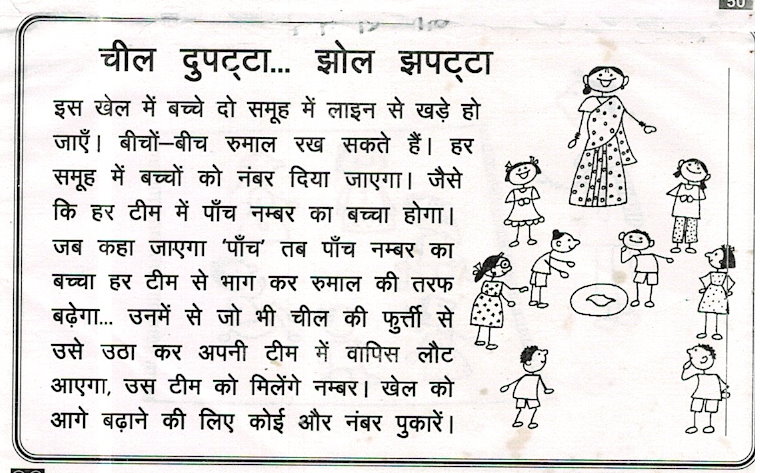 50
चील दुपट्टा... झोल झपट्टा
इस खेल में बच्चे दो समूह में लाइन से खड़े हो
जाएँ। बीचों–बीच रुमाल रख सकते हैं। हर
समूह में बच्चों को नंबर दिया जाएगा। जैसे
कि हर टीम में पाँच नम्बर का बच्चा होगा।
जब कहा जाएगा ‘पाँच’ तब पाँच नम्बर का
बच्चा हर टीम से भाग कर रुमाल की तरफ
बढ़ेगा... उनमें से जो भी चील की फुर्त्ती से
उसे उठा कर अपनी टीम में वापिस लौट
आएगा, उस टीम को मिलेंगे नम्बर। खेल को
आगे बढ़ाने की लिए कोई और नंबर पुकारें।